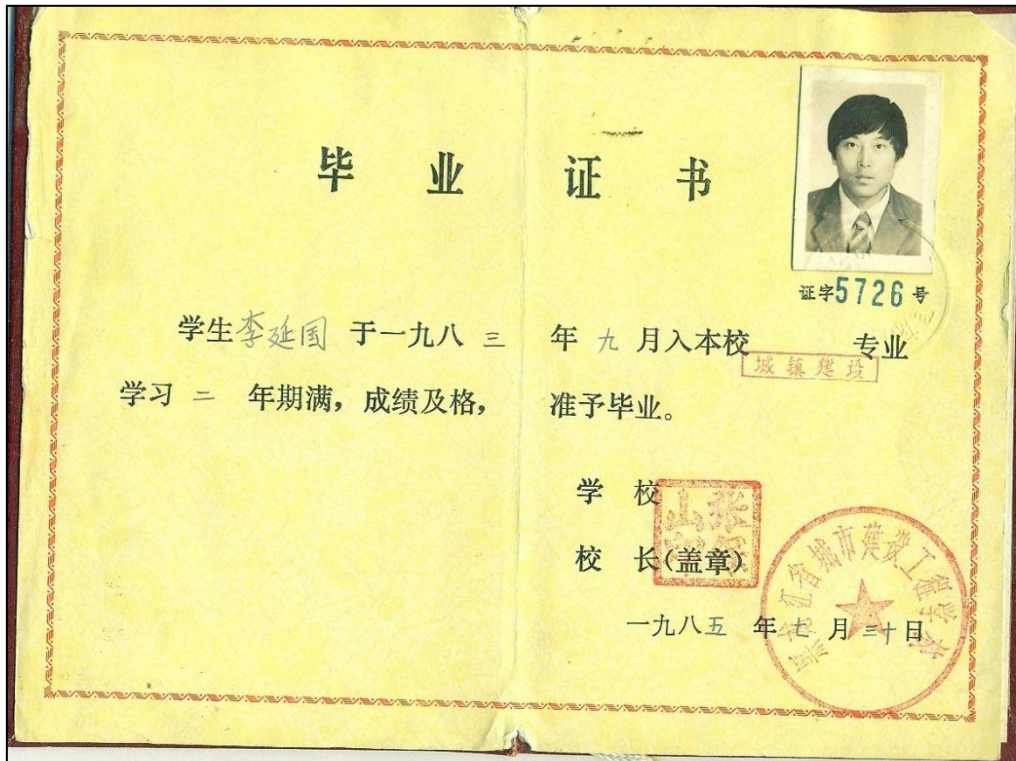 毕业证书
证字5726号
学生李延国于一九八三年九月入本校城镇建设专业
学习二年期满，成绩及格，准予毕业。
学校
校长(盖章)
一九八五年七月三十日
黑龙江省城市建设工程学校